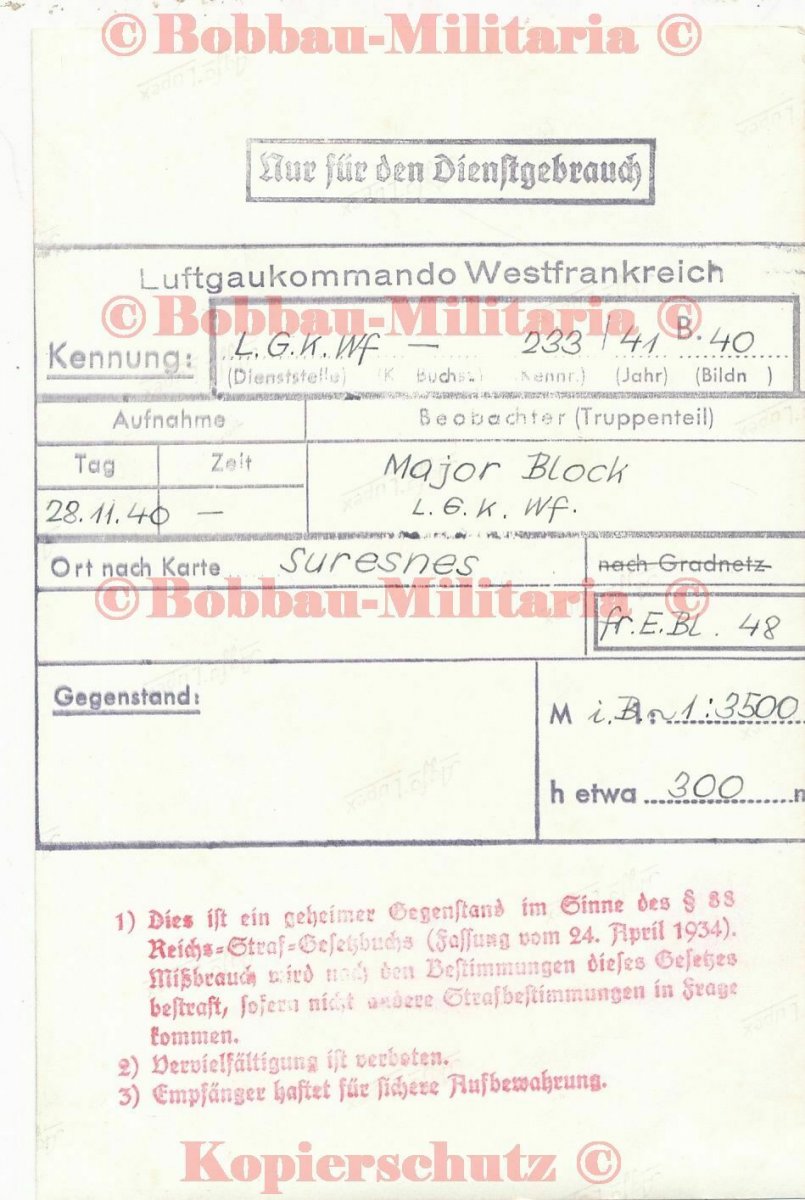 © Bobbau-Militaria ©
Nur für den Dienstgebrauch
Luftgaukommando Westfrankreich
© Bobbau-Militaria ©
Kennung: L.G.K.Wf — 233 / 41 B. 40
(Dienststelle) (K. Buchs.) Kennr.) (Jahr) (Bildn )
Aufnahme Beobachter (Truppenteil)
Tag Zeit Major Block
28.11.40 — L. G. K. Wf.
Ort nach Karte Suresnes nach Gradnetz
© Bobbau-Militaria ©
fr. E. Bl. 48
Gegenstand:
M i. B. ~ 1:3500
h etwa 300 m
1) Dies ist ein geheimer Gegenstand im Sinne des § 88
Reichs-Straf-Gesetzbuchs (Fassung vom 24. April 1934).
Mißbrauch wird nach den Bestimmungen dieses Gesetzes
bestraft, sofern nicht andere Strafbestimmungen in Frage
kommen.
2) Vervielfältigung ist verboten.
3) Empfänger haftet für sichere Aufbewahrung.
Kopierschutz ©